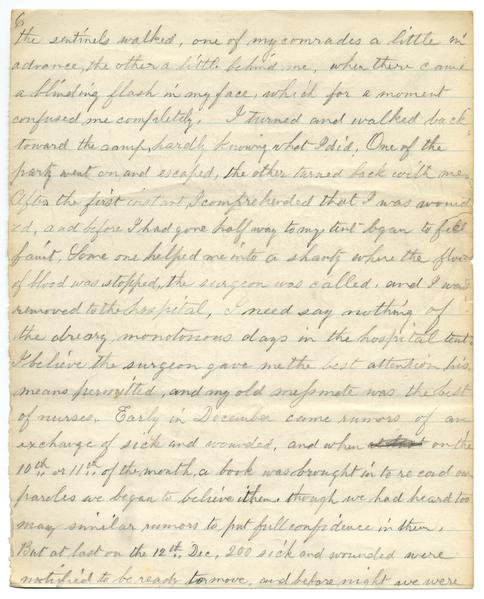 6
the sentinels walked, one of my comrades a little in
advance, the other a little behind me, when there came
a blinding flash in my face, which for a moment
confused me completely. I turned and walked back
toward the camp, hardly knowing what I did. One of the
party went on and escaped, the other turned back with me.
After the first instant, I comprehended that I was wound
ed, and before I had gone half way to my tent began to feel
faint. Some one helped me into a shanty where the flow
of blood was stopped, the surgeon was called, and I was
removed to the hospital. I need say nothing of
the dreary, monotonous days in the hospital tent.
I believe the surgeon gave me the best attention his
means permitted, and my old messmate was the best
of nurses. Early in December came rumors of an
exchange of sick and wounded, and when on the
10th. or 11th. of the month, a book was brought in to record our
paroles we began to believe them, though we had heard too
many similar rumors to put full confidence in them.
But at last on the 12th. Dec. 200 sick and wounded were
notified to be ready to move, and before night we were